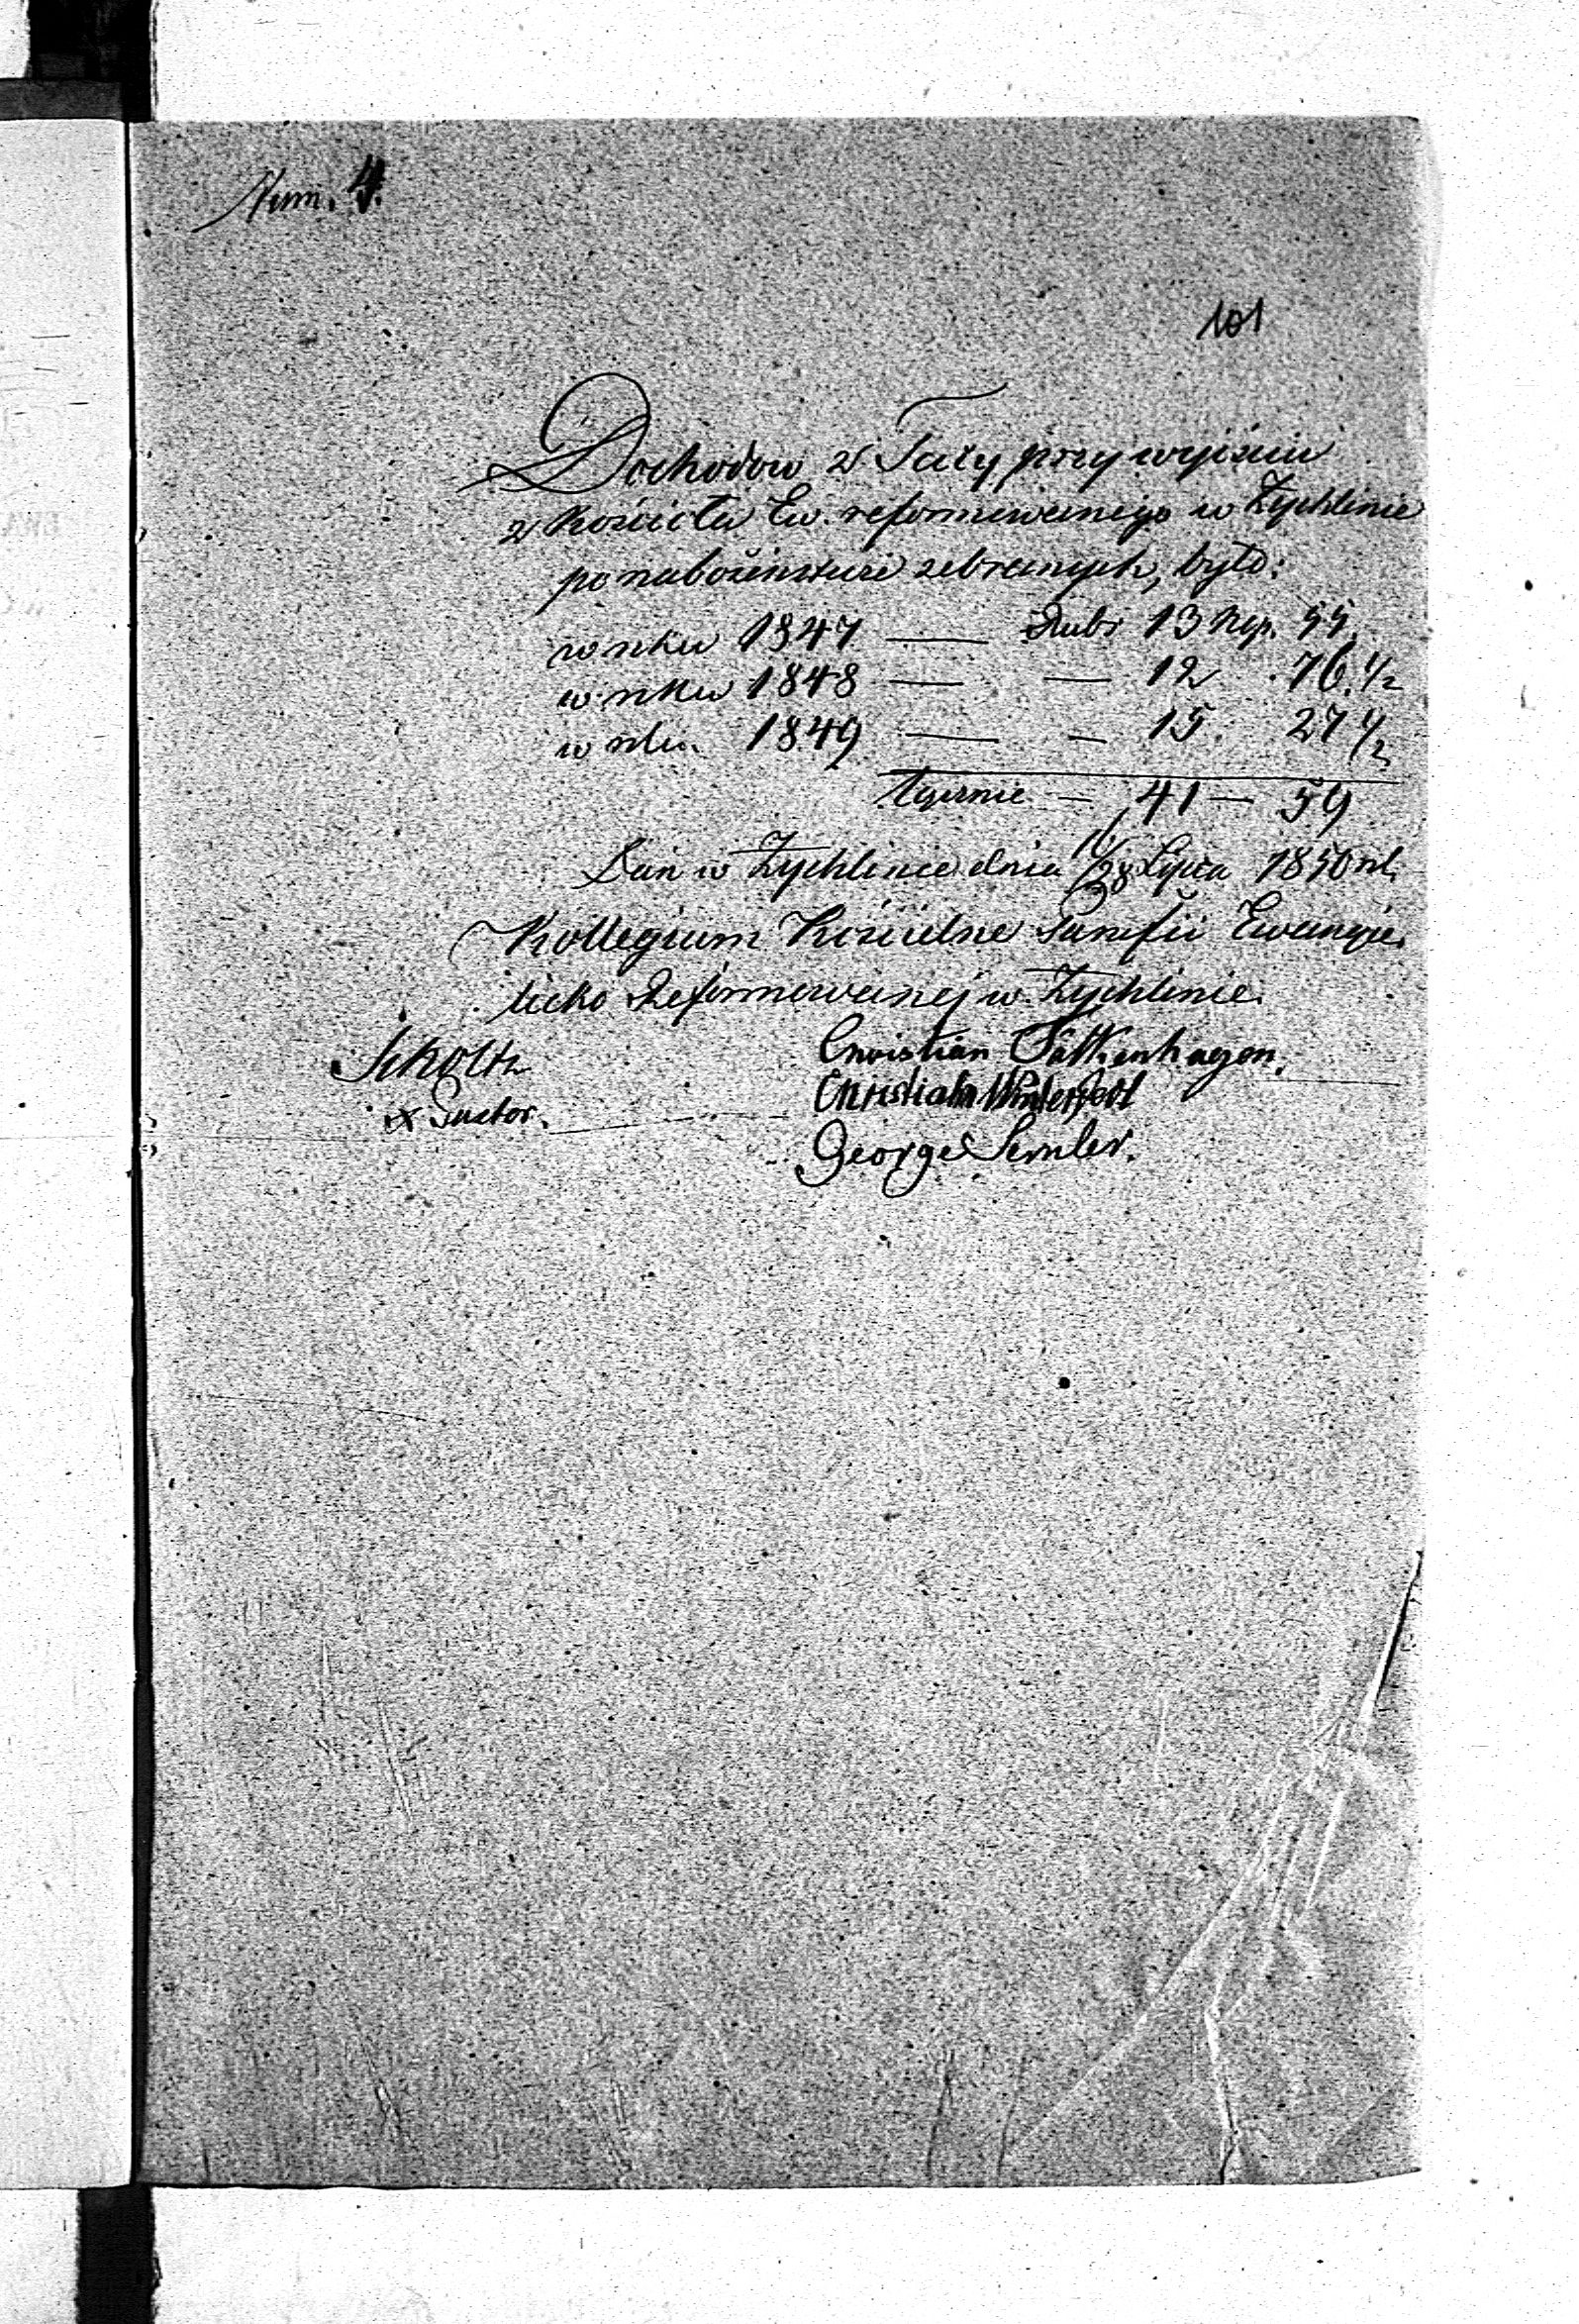 Num. 4.
101
Dochodow z Tacy przy wyjściu
z Kościoła Ew. reformowanego w Żychlinie
po nabożeństwie zebranych, było:
w roku 1847 — Rubs 13 Kop. 55
w roku 1848 — — 12 . 76 ½
w roku 1849 — — 15. 27 ½
łącznie — 41 — 59
Dan w Żychlinie dnia 16/28 Lipca 1850 r.
Kollegium Kościelne Parafii Ewangie
licko Reformowanej w Żychlinie.
Scholtz
Pastor.
Christian Falkenhagen.
Christian Winterfeld
George Semler.